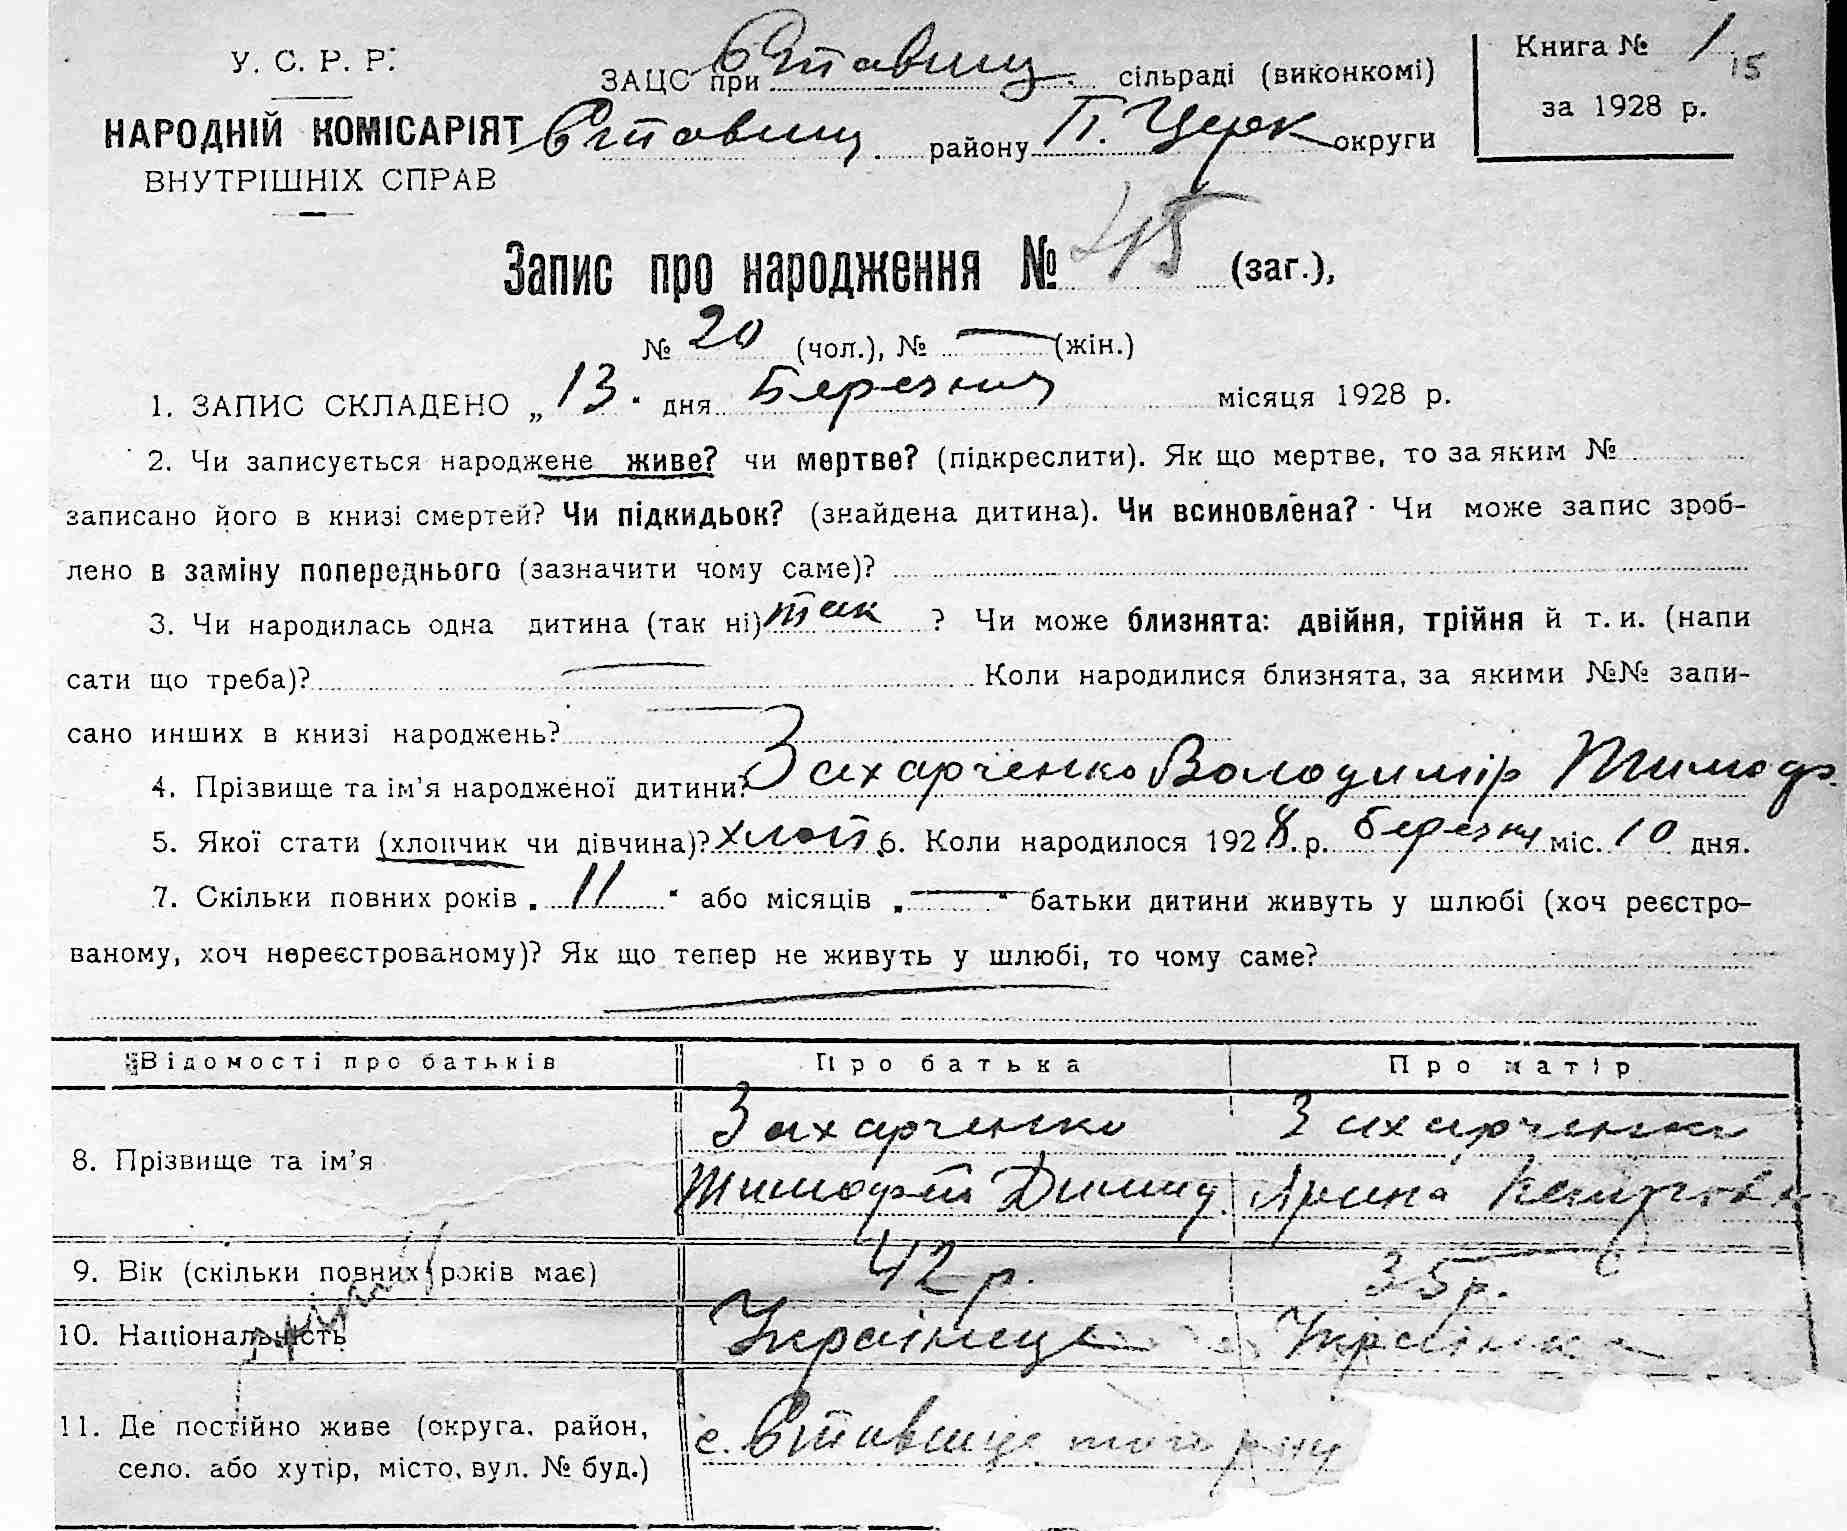 У. С. Р. Р.
НАРОДНІЙ КОМІСАРІЯТ
ВНУТРІШНІХ СПРАВ
ЗАЦС при Ставищ. сільраді (виконкомі)
Ставищ. району Б. Церк округи
Книга № 1 15
за 1928 р.
Запис про народження № 45 (заг.),
№ 20 (чол.), № — (жін.)
1. ЗАПИС СКЛАДЕНО „13" дня Березня місяця 1928 р.
2. Чи записується народжене живе? чи мертве? (підкреслити). Як що мертве, то за яким №
записано його в книзі смертей? Чи підкидьок? (знайдена дитина). Чи всиновлена? Чи може запис зроб-
лено в заміну попереднього (зазначити чому саме)?
3. Чи народилась одна дитина (так ні) так ? Чи може близнята: двійня, трійня й т. и. (напи
сати що треба)? — Коли народилися близнята, за якими №№ запи-
сано инших в книзі народжень? —
4. Прізвище та ім'я народженої дитини? Захарченко Володимір Тимоф.
5. Якої стати (хлопчик чи дівчина)? хлоп. 6. Коли народилося 1928 р. березня міс. 10 дня.
7. Скільки повних років „11" або місяців „—" батьки дитини живуть у шлюбі (хоч реєстро-
ваному, хоч нереєстрованому)? Як що тепер не живуть у шлюбі, то чому саме?
—
Відомості про батьків Про батька Про матір
8. Прізвище та ім'я Захарченко Захарченко
Тимофій Димид. Ярина
9. Вік (скільки повних років має) 42 р. 35 р.
10. Національність Українець Українка
11. Де постійно живе (округа, район,
село, або хутір, місто, вул. № буд.) с. Ставище того р-ну